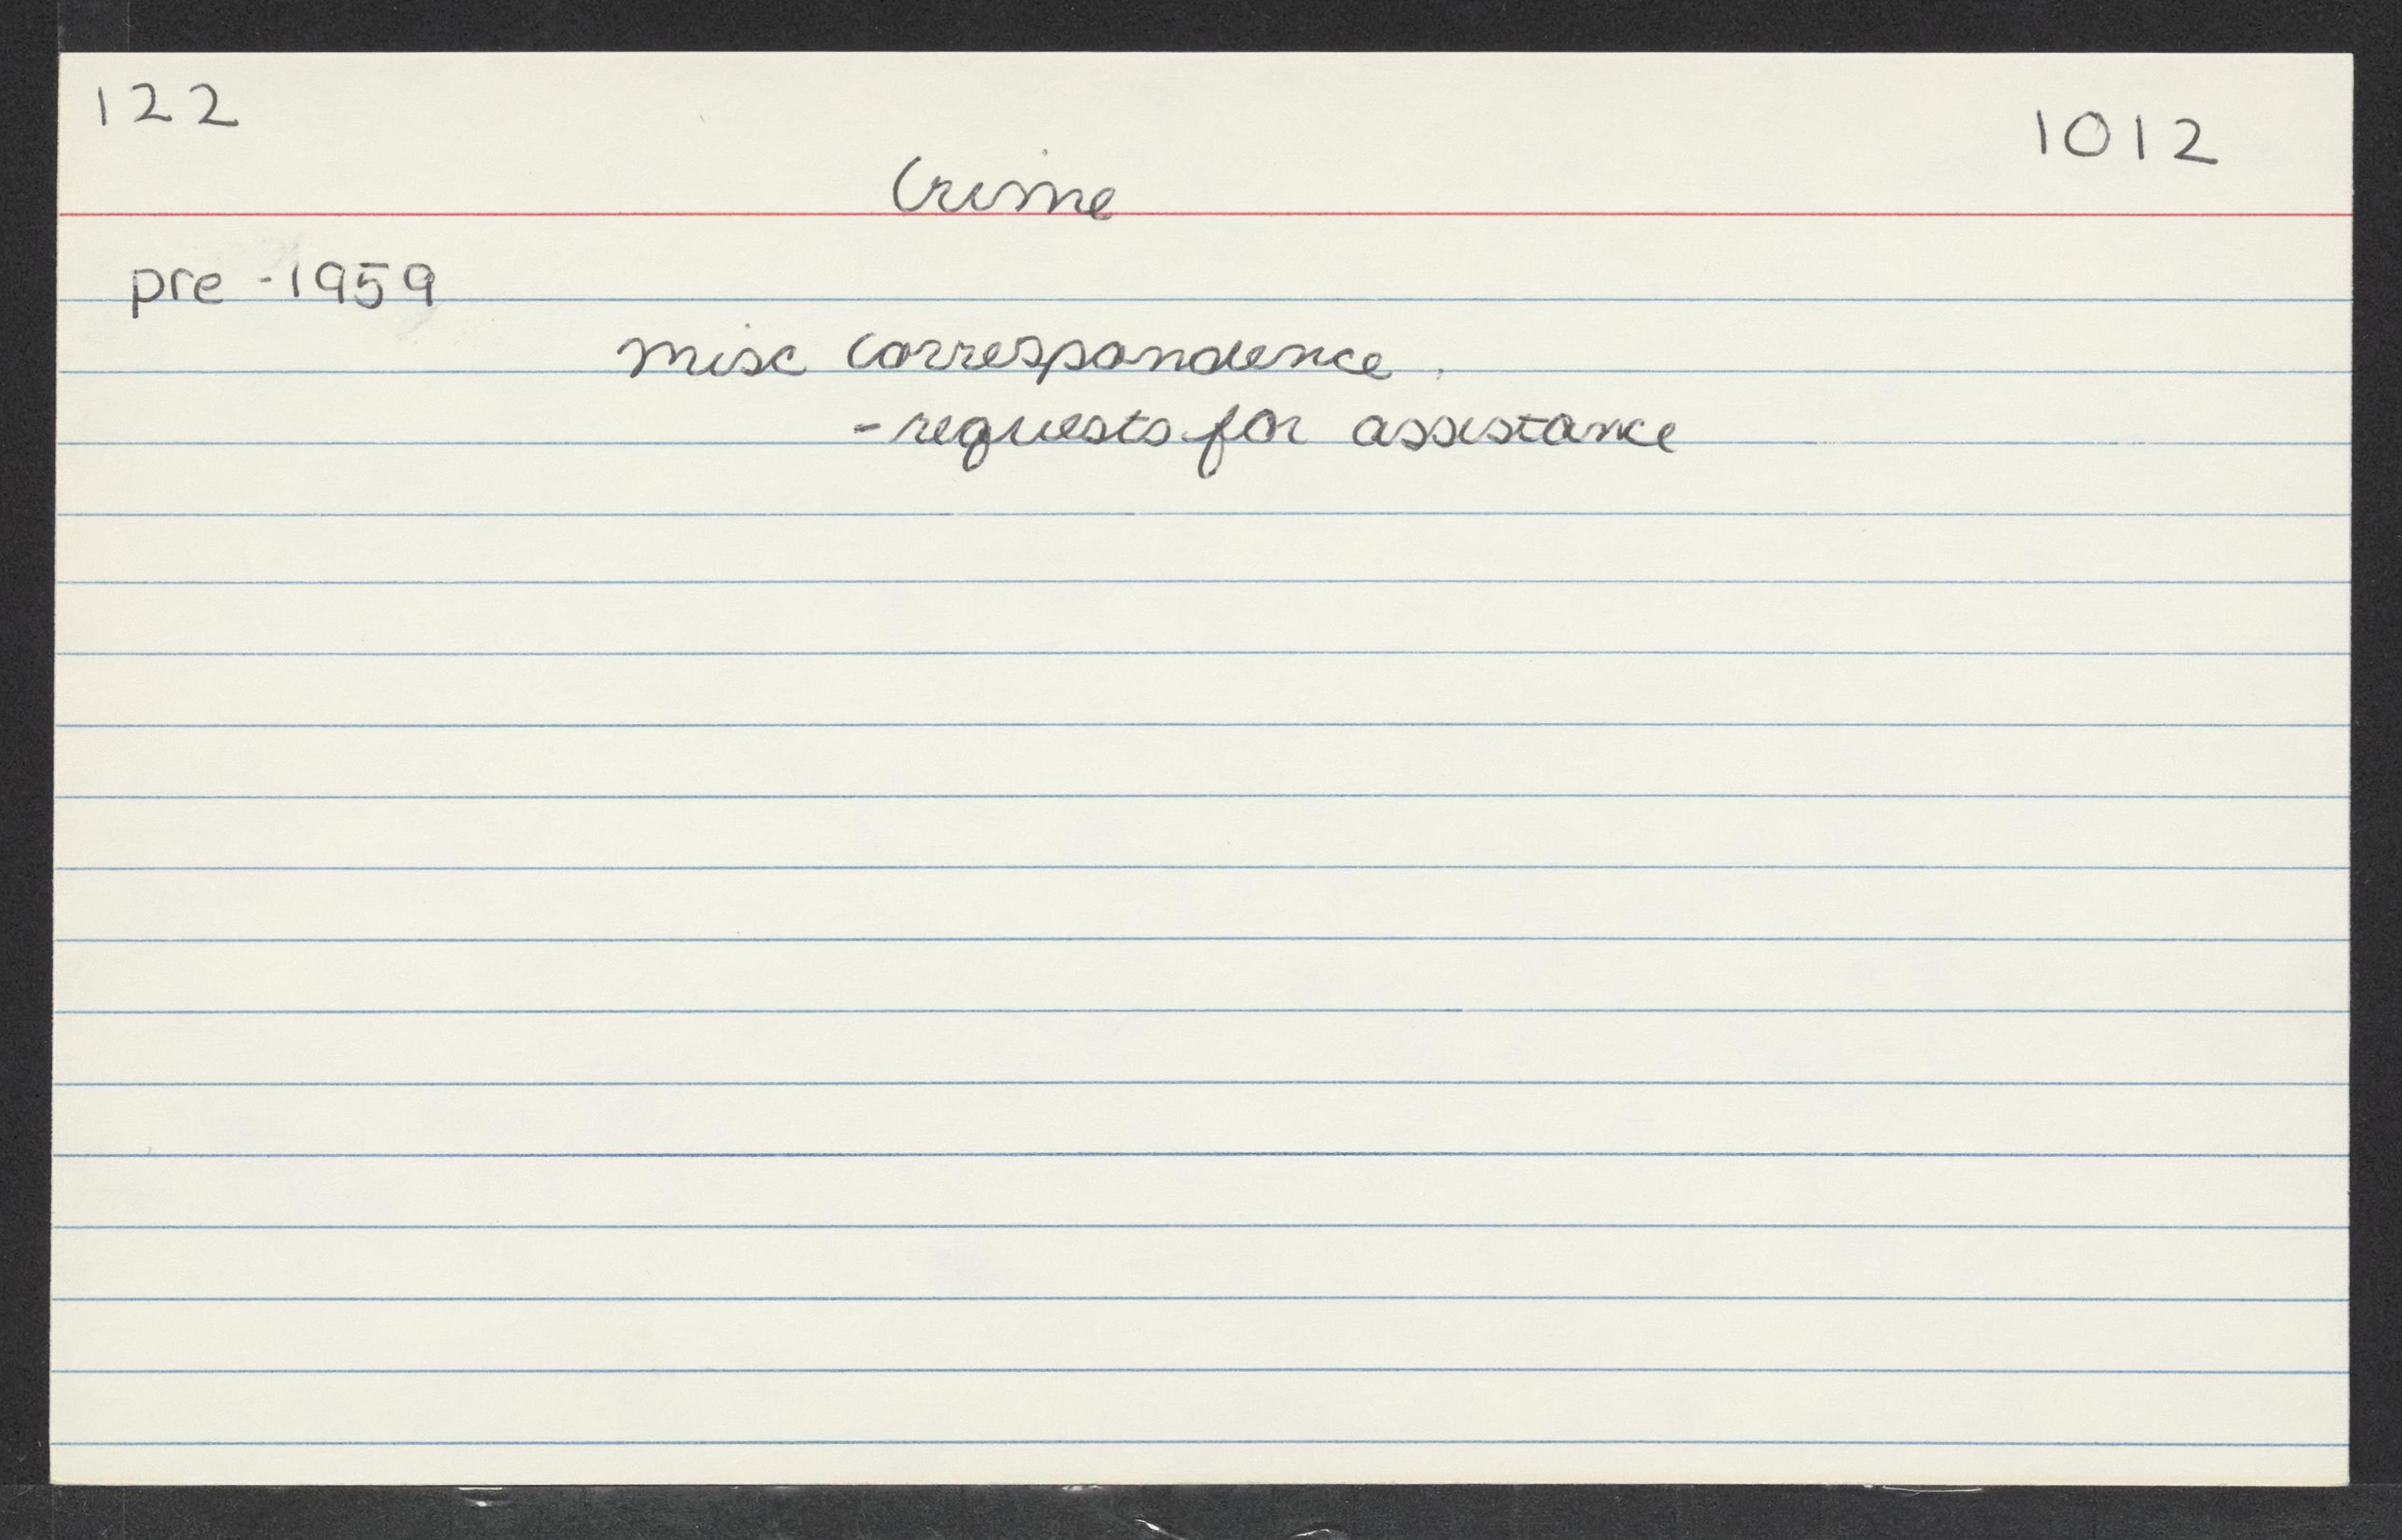 122
1012
Crime
pre-1959
misc correspondence.
-requests for assistance